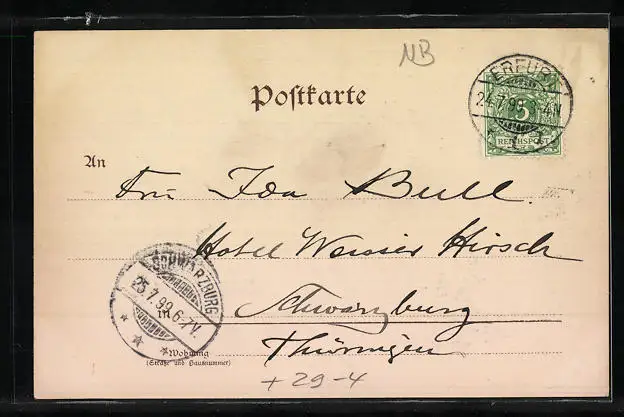 NB
ERFURT
24.7.99. 4-N
5
REICHSPOST
Postkarte
An
Frl. Ida Bull.
Hotel Weisser Hirsch
SCHWARZBURG
25.7.99. 6-7V.
in Schwarzburg
Thüringen
Wohnung
(Straße und Hausnummer)
+29-4